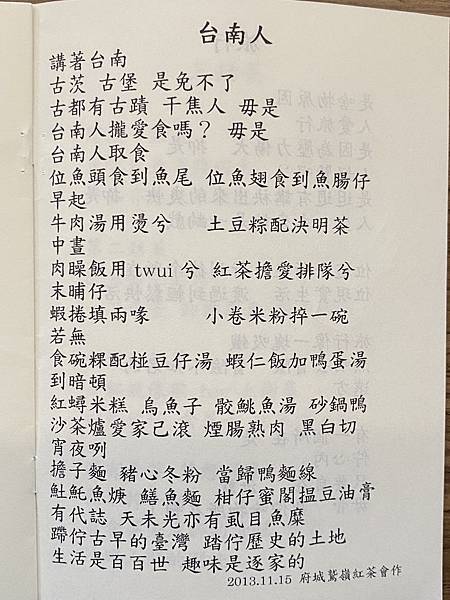 台南人
講著台南
古茨 古堡 是免不了
古都有古蹟 干焦人 毋是
台南人攏愛食嗎？ 毋是
台南人取食
位魚頭食到魚尾 位魚翅食到魚腸仔
早起
牛肉湯用燙兮 土豆粽配決明茶
中晝
肉臊飯用 twui 兮 紅茶擔愛排隊兮
末晡仔
蝦捲填兩喙 小卷米粉捽一碗
若無
食碗粿配椪豆仔湯 蝦仁飯加鴨蛋湯
到暗頓
紅蟳米糕 烏魚子 骹鮡魚湯 砂鍋鴨
沙茶爐愛家己滾 煙腸熟肉 黑白切
宵夜咧
擔子麵 豬心冬粉 當歸鴨麵線
𩵚魠魚焿 鱔魚麵 柑仔蜜閣搵豆油膏
有代誌 天未光亦有虱目魚糜
蹛佇古早的臺灣 踏佇歷史的土地
生活是百百世 趣味是逐家的
2013.11.15 府城鷲嶺紅茶會作